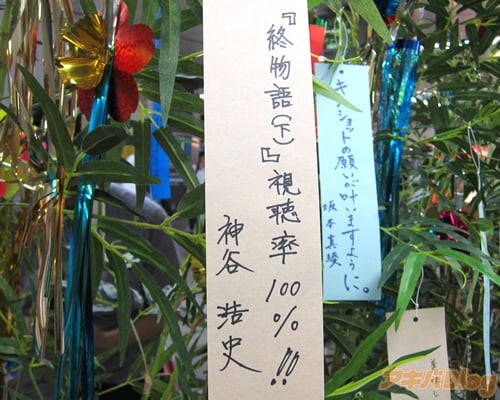 『終物語(下)』視聴率100%!!
神谷浩史
キスショットの願いが叶いますように。
坂本真綾
アキバBlog